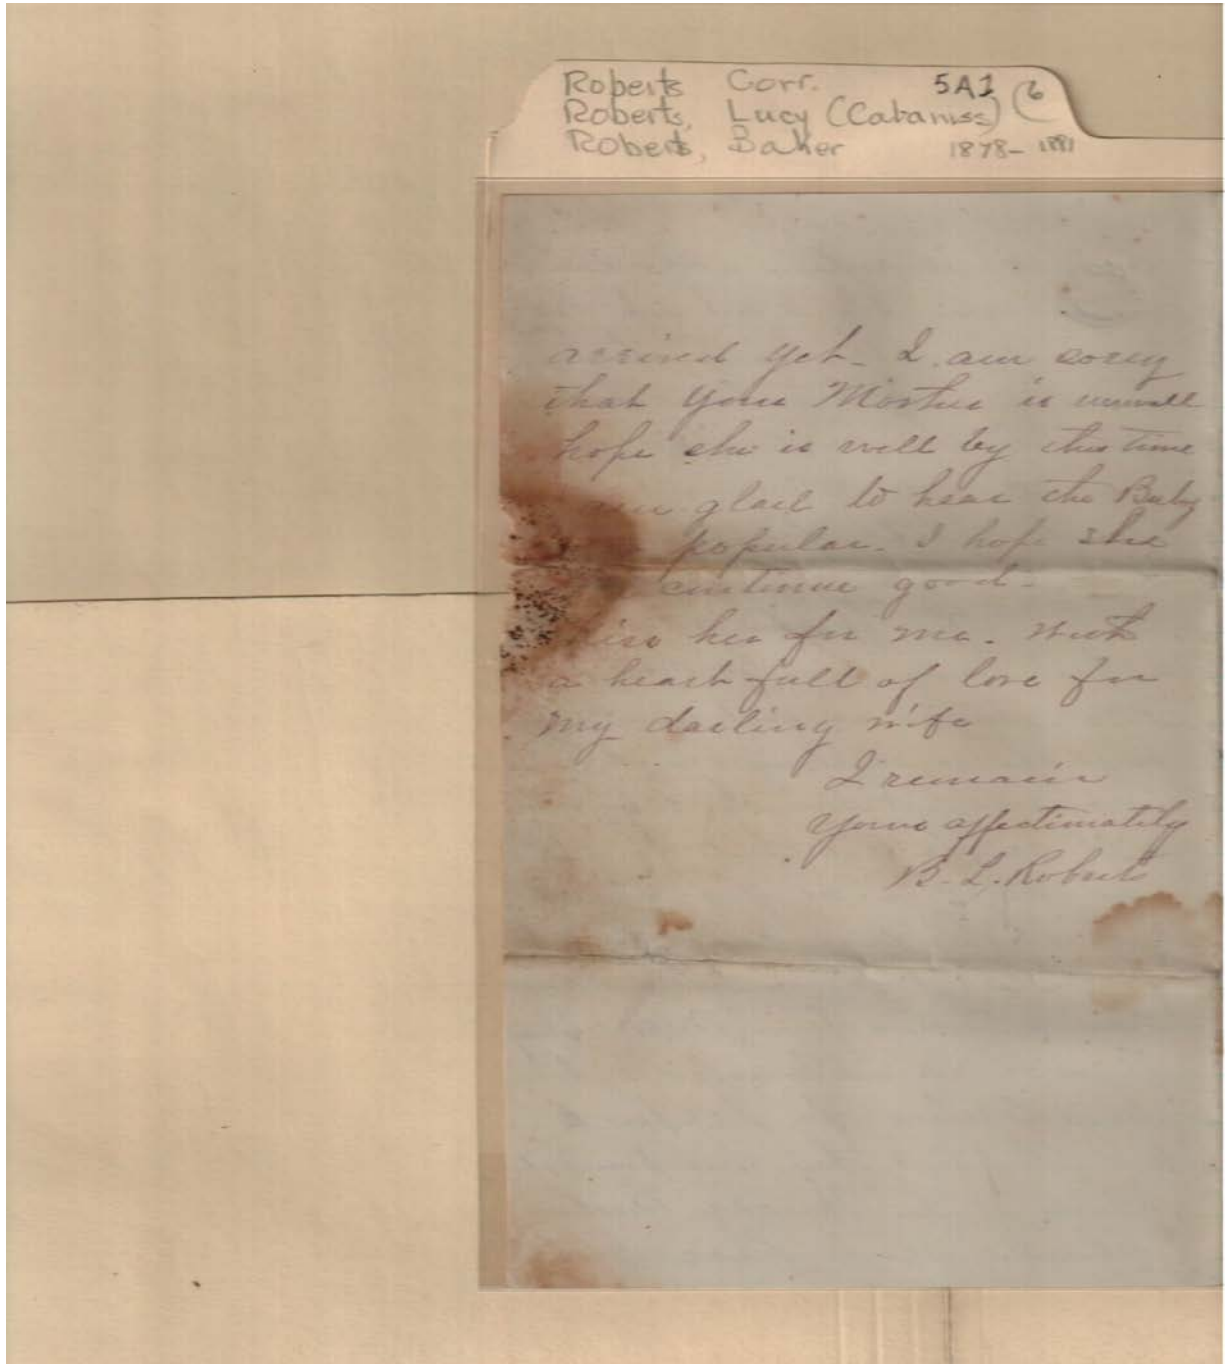 Roberts Corr. 5A1 (6
Roberts, Lucy (Cabaniss)
Roberts, Baker 1878- 1881
arrived yet_ I am sorry
that your Mother is unwell
hope she is well by this time
glad to hear the Baby
popular. I hope she
continue good_
her for me. With
a heart full of love for
my darling wife
I remain
Yours affectionately
B. L. Roberts